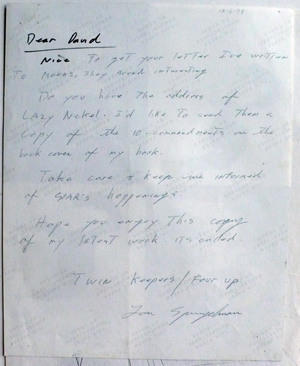 Dear David
Nice To get your letter I've written
To Moens, They sound interesting
Do you have the address of
Lazy Nickel. I'd like to send Them a
Copy of the 10 commandments on the
back cover of my book.
Take care & keep me informed
of happenings.
Hope you enjoy This copy
of my latest work it's ended.
Twin Keepers / Four up
Tom